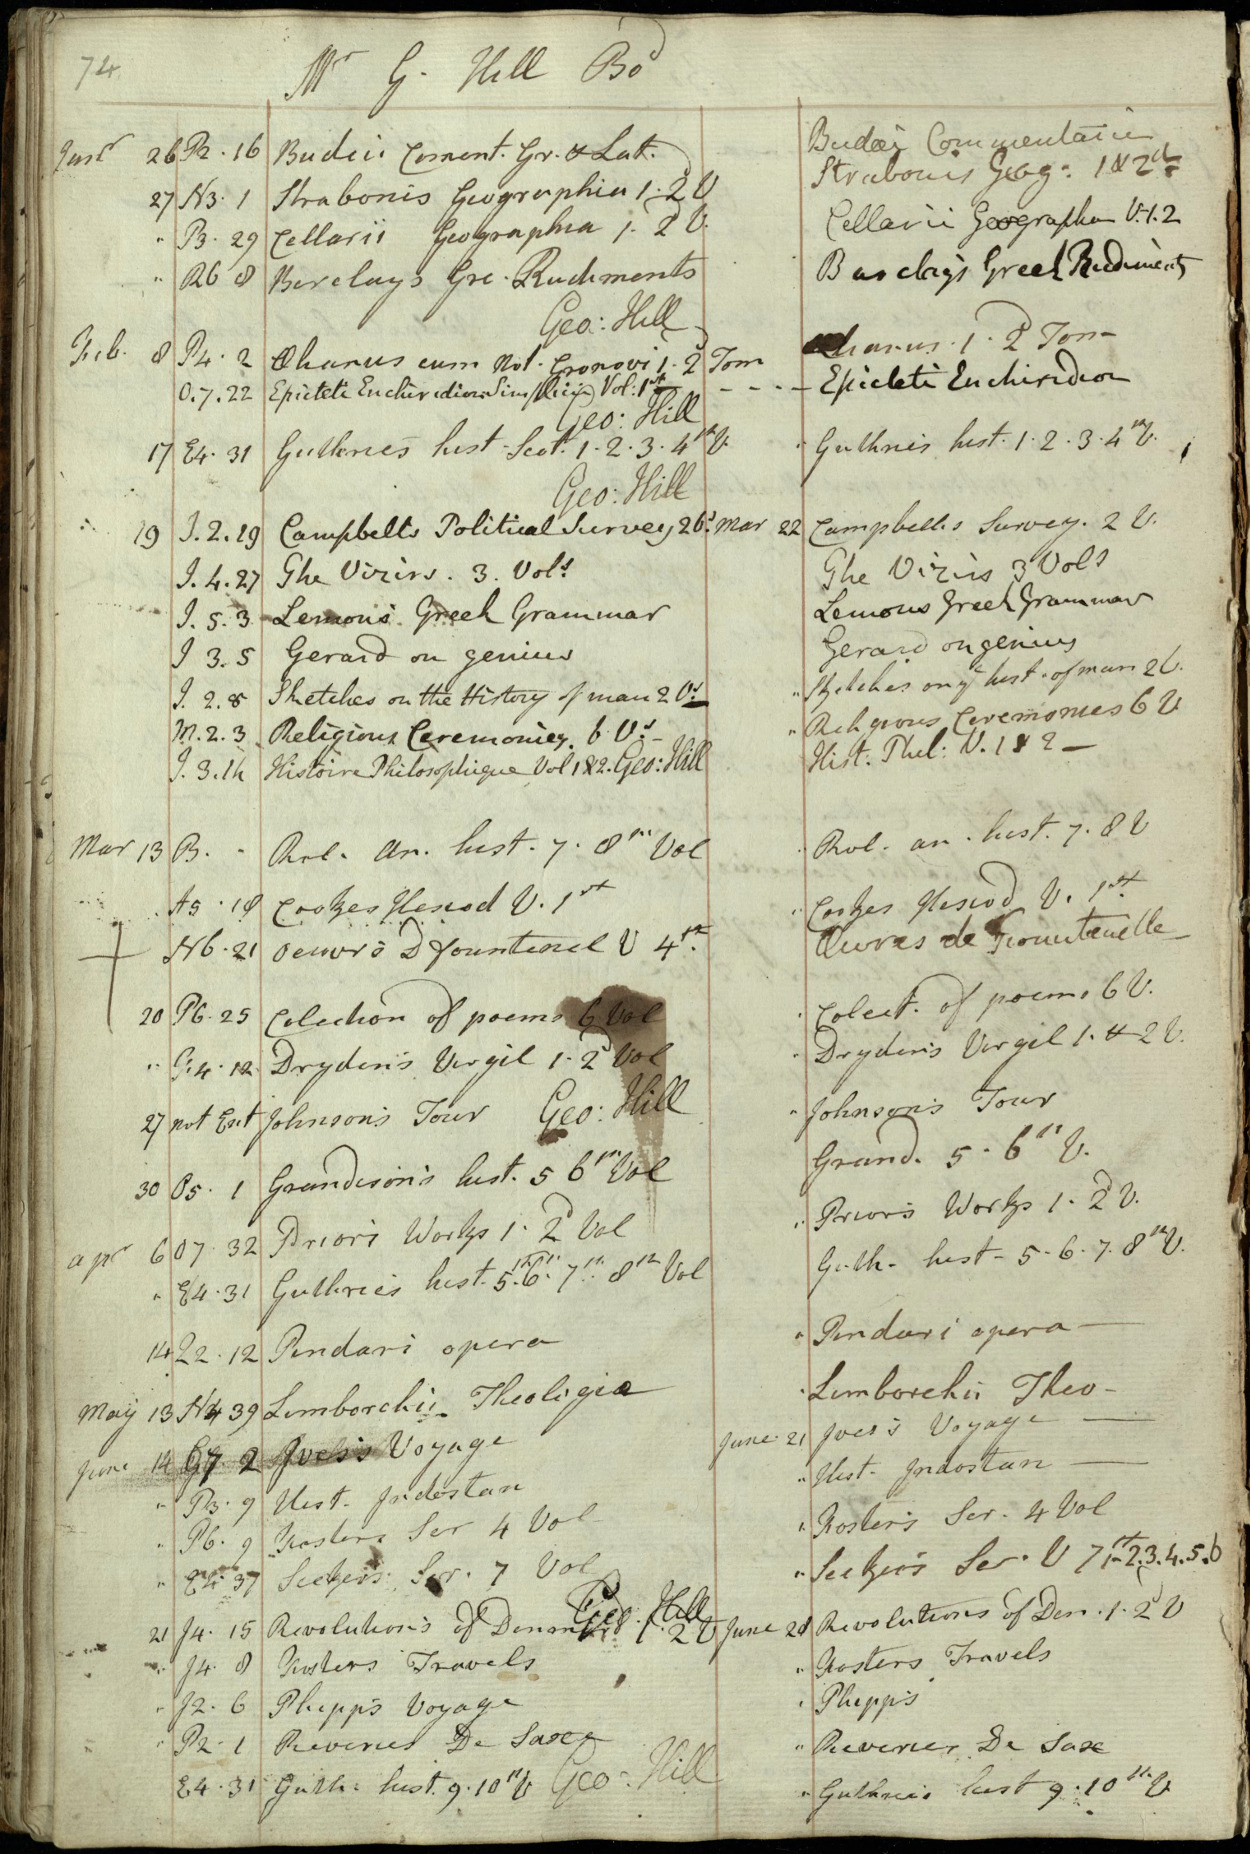 74
Mr G. Hill Bod
Janr 26 P2. 16 Budii Coment. Gr. & Lat. Budæi Commentarii
27 N3. 1 Strabonis Geographia 1. 2d V Strabonis Geog: 1 & 2d
" P3. 29 Cellarii Geographia 1. 2d V. Cellarii Geographia V. 1. 2
" R6 8 Barclays Gre. Rudiments Barclay's Greek Rudiments
Geo: Hill
Feb. 8 P4. 2 Ælianus cum Not. Gronovi 1. 2d Tom Ælianus. 1. 2d Tom
O.7.22 Epicteti Enchiridion Simplicii Vol: 1st - - - - Epicteti Enchiridion
Geo: Hill
17 E4. 31 Guthries hist. Scot. 1. 2. 3. 4th V. " Guthries hist. 1. 2. 3. 4th V.
Geo: Hill
19 J. 2. 19 Campbells Political Survey 2 Vs. Mar 22 Campbells Survey. 2 V.
J. 4. 27 The Vizirs. 3. Vols. The Vizirs 3 Vols
J. 5. 3 Lemons Greek Grammar Lemons Greek Grammar
J 3. 5 Gerard on genius Gerard on genius
J. 2. 8 Sketches on the History of man 2 Vs " Sketches on ye hist. of man 2 V.
M. 2. 3 Religious Ceremonies. 6 Vs. " Religious Ceremonies 6 V
J. 3. 14 Histoire Philosophique Vol 1 & 2. Geo: Hill Hist. Phil: V. 1 & 2
Mar 13 B. - Rol. an. hist. 7. 8th Vol " Rol. an. hist. 7. 8 V
A5. 18 Cookes Hesiod V. 1st " Cookes Hesiod V. 1st
N6. 21 Oeuvrs D Fountenel V 4th. Œuvres de Fountenelle
20 P6. 25 Colection of poems 6 Vol " Colect. of poems 6 V.
" 4. 12 Dryden's Virgil 1. 2d Vol " Dryden's Virgil 1. & 2 V.
27 not Ent Johnson's Tour Geo: Hill " Johnson's Tour
30 O5. 1 Grandison's hist. 5 6th Vol Grand. 5. 6th V.
apr 6 O7. 32 Prior's Works 1. 2d Vol " Prior's Works 1. 2d V.
" E4. 31 Guthrie's hist. 5th. 6th. 7th. 8th Vol Guth. hist. 5. 6. 7. 8th V.
14 Z2. 12 Pindari opera " Pindari opera
May 13 N4 39 Limborchii Theoligia " Limborchii Theo-
June 14 G7 2 Ives's Voyage June 21 Ives's Voyage
" P3. 9 Hist. Indostan " Hist. Indostan
" P6. 9 Fosters Ser 4 Vol " Foster's Ser. 4 Vol
" E4. 37 Seckers Ser. 7 Vol " Secker's Ser. V 7 1st 2. 3. 4. 5. 6
Geo: Hill
21 J4. 15 Revolution's of Denmark 1. 2d V June 28 Revolutions of Den. 1. 2d V
" J4. 8 Fosters Travels " Fosters Travels
" J2. 6 Phipp's Voyage " Phipp's
" P2. 1 Reveries De Saxe " Reveries De Saxe
E4. 31 Guth: hist. 9. 10th V Geo: Hill " Guthrie's hist 9. 10th V